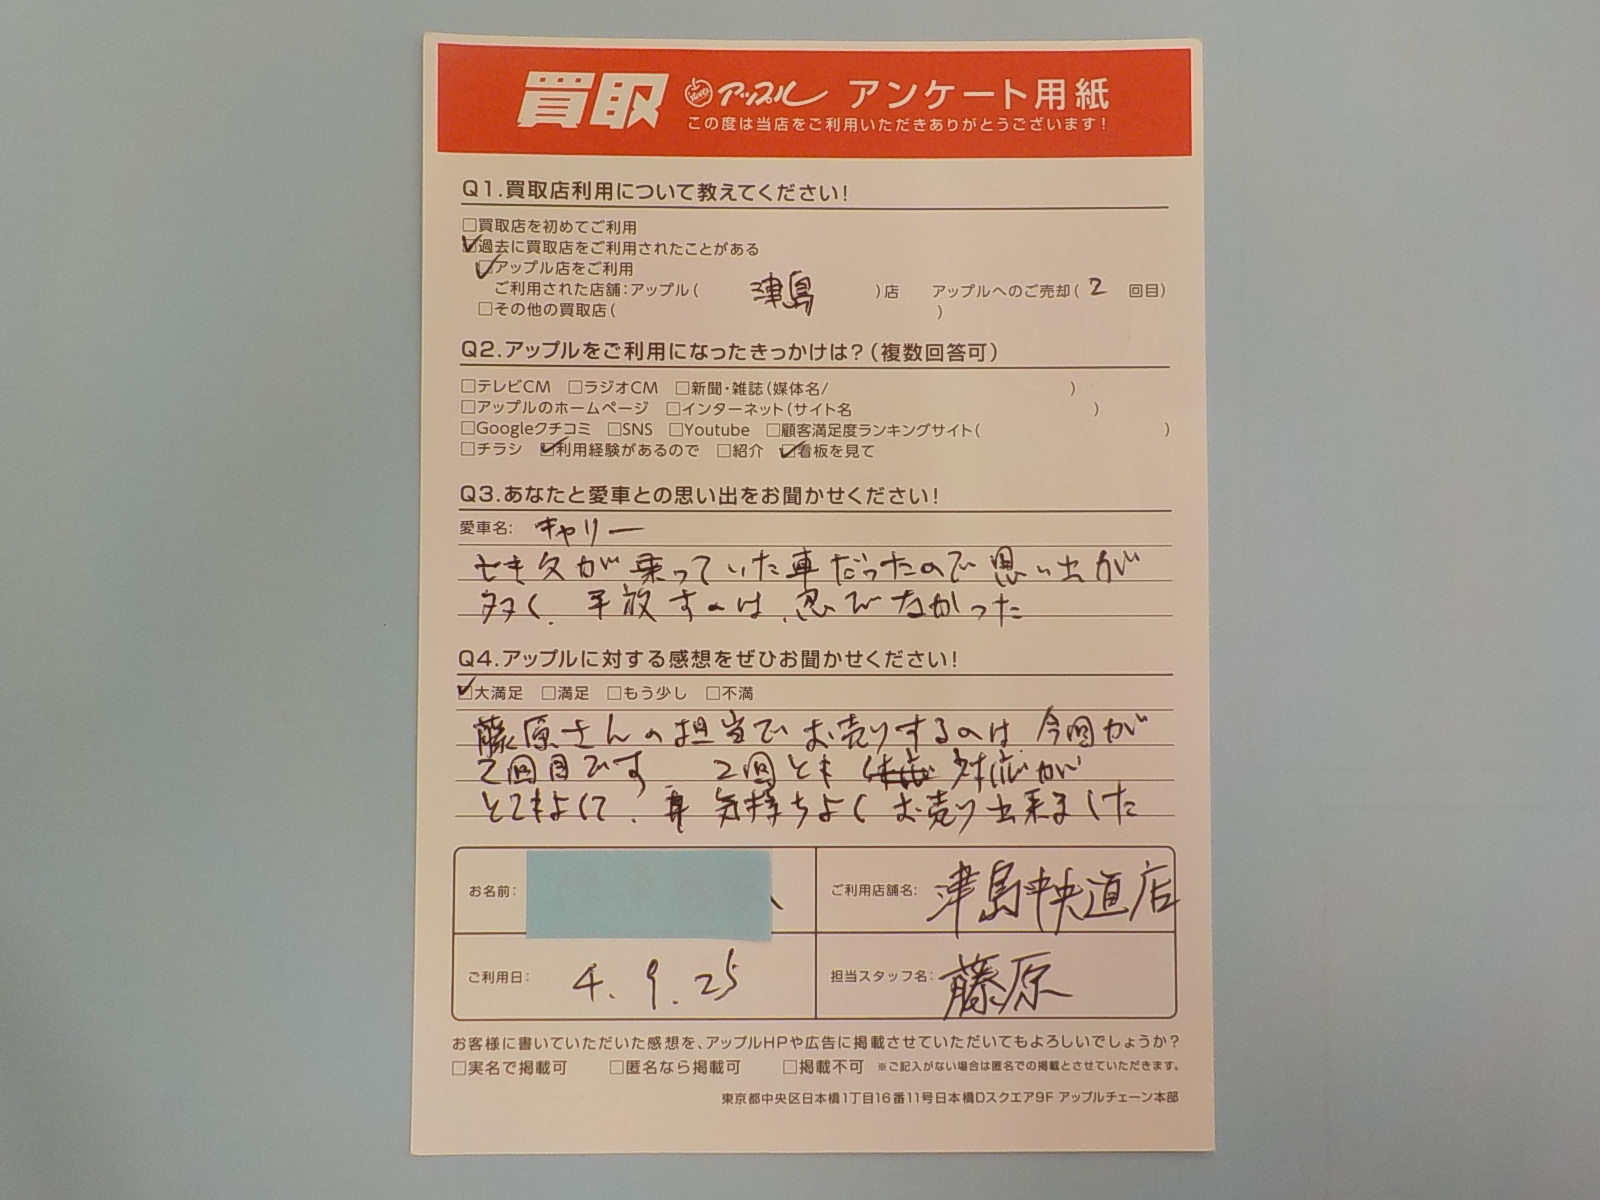 買取 アップル アンケート用紙
この度は当店をご利用いただきありがとうございます!
Q1.買取店利用について教えてください!
□買取店を初めてご利用
☑過去に買取店をご利用されたことがある
☑アップル店をご利用
ご利用された店舗:アップル( 津島 )店 アップルへのご売却( 2 回目)
□その他の買取店( )
Q2.アップルをご利用になったきっかけは?(複数回答可)
□テレビCM □ラジオCM □新聞・雑誌(媒体名/ )
□アップルのホームページ □インターネット(サイト名 )
□Googleクチコミ □SNS □Youtube □顧客満足度ランキングサイト( )
□チラシ ☑利用経験があるので □紹介 ☑看板を見て
Q3.あなたと愛車との思い出をお聞かせください!
愛車名: キャリー
亡き父が乗っていた車だったので思い出が
多く、手放すのは、忍びなかった
Q4.アップルに対する感想をぜひお聞かせください!
☑大満足 □満足 □もう少し □不満
藤原さんの担当でお売りするのは今回が
2回目です 2回とも 対応が
とてもよくて、 気持ちよくお売り出来ました
お名前:
ご利用店舗名: 津島中央道店
ご利用日: 4.9.25
担当スタッフ名: 藤原
お客様に書いていただいた感想を、アップルHPや広告に掲載させていただいてもよろしいでしょうか?
□実名で掲載可 □匿名なら掲載可 □掲載不可 ※ご記入がない場合は匿名での掲載とさせていただきます。
東京都中央区日本橋1丁目16番11号日本橋Dスクエア9F アップルチェーン本部